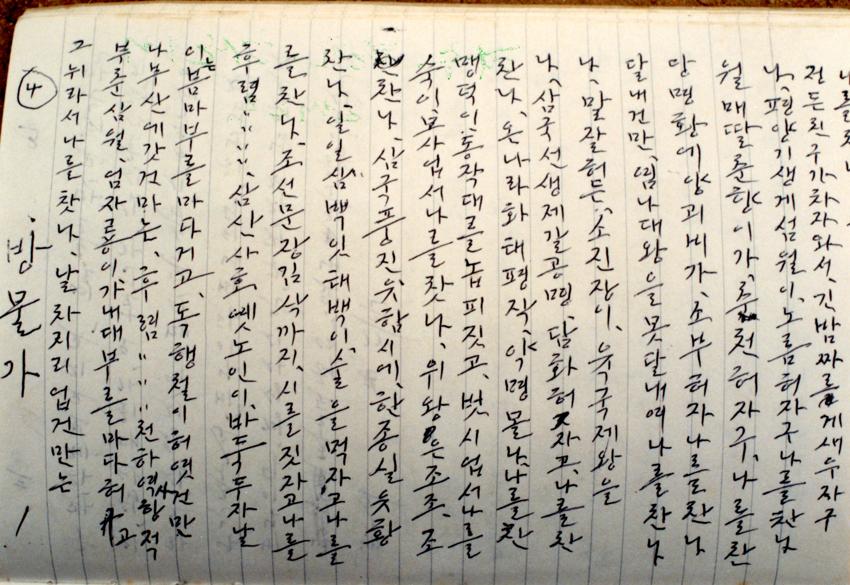 ④
방물가
그뉘라서나를찻나, 날찻지리업건만는
부춘삼월, 엄자릉이가내대부를마다허고
나부산에갓건마는, 후렴 〃 〃 〃 천하역황적
이는봄마부를마다고, 독행철이허엿건만
후렴 〃 〃 〃, 삼산사호옛노인이, 바둑두자날
를찬나, 조선문장김삭까지, 시를짓자고나를
찬나, 일일삼백잇태백이, 술을먹자고나를
찬나, 삼국풍진윳함시에, 한종실윳황
숙이모사업서나를찻나, 위왕은조조, 조
맹덕이, 동작대를놉피짓고, 벗시업서나를
찬나, 온나라화태평작, 약명몰나, 나를찬
나, 삼국선생제갈공명, 담화허자고, 나를찬
나, 말잘허든, 소진장이, 육국제왕을
달내건만, 염나대왕을못달내여나를찬나
당명황에양괴비가, 조부허자나를찬나
월매딸춘향이가, 전허자구, 나를찬
나, 평양기생게섬월이, 노름허자구나를찬나
전든친구가차자와서, 긴밤짜르게새우자구
나를찬나